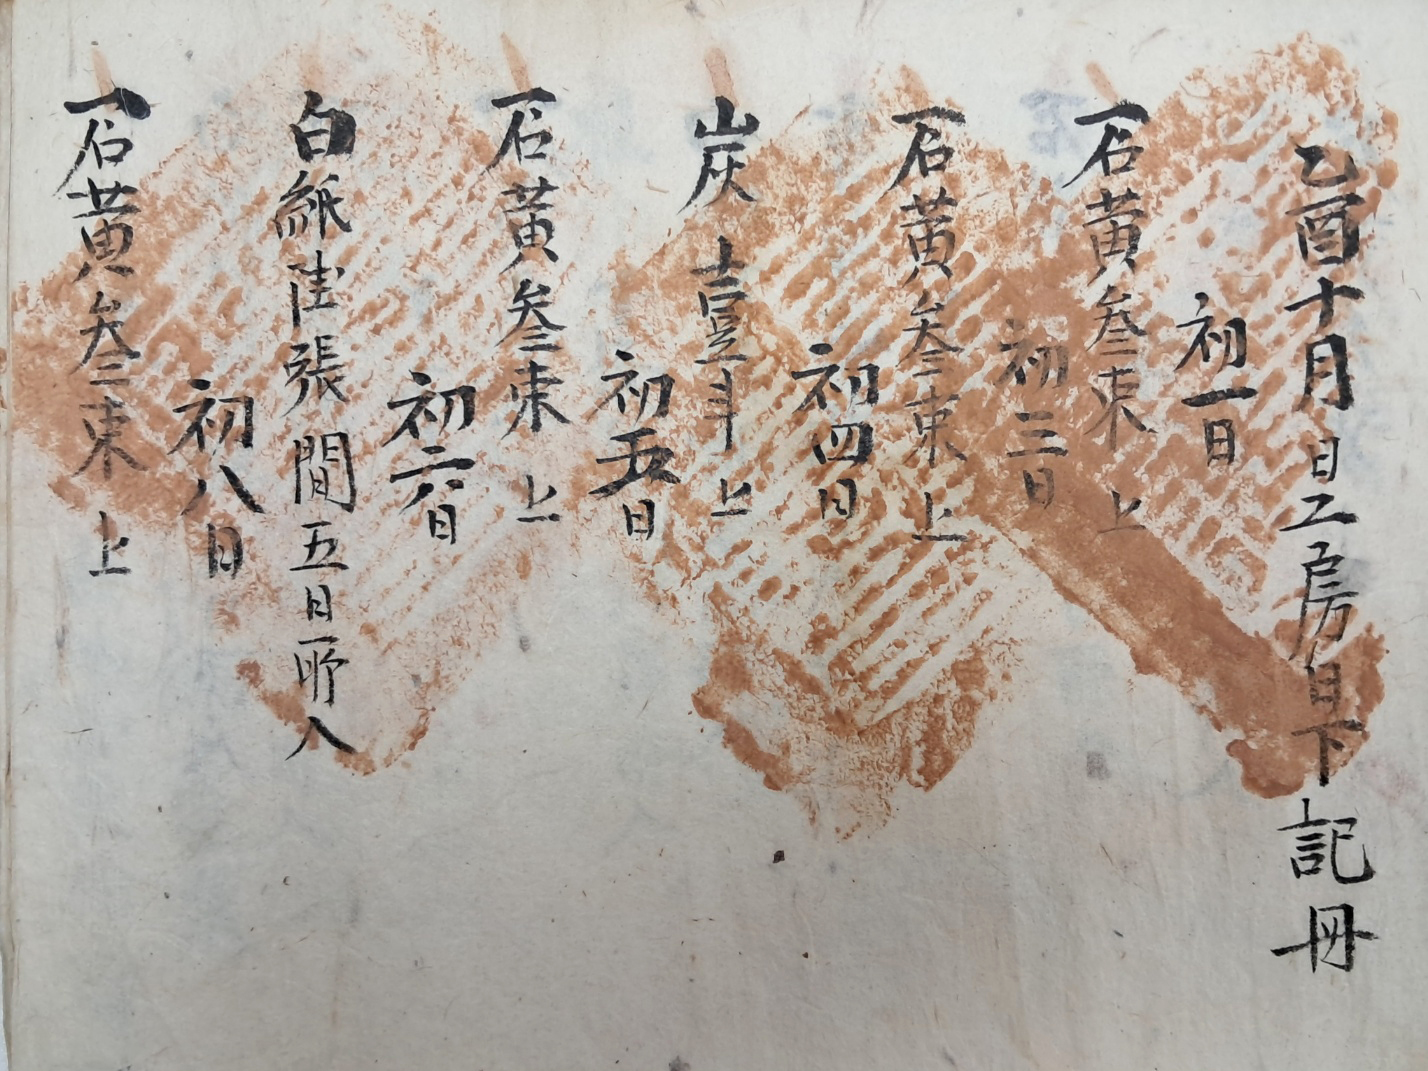 乙酉十月日工房日下記冊
初一日
一石黃叁束上
初三日
一石黃叁束上
初四日
山灰壹斗上
初五日
一石黃叁束上
初六日
白紙陸張間五日所入
初八日
一石黃叁束上